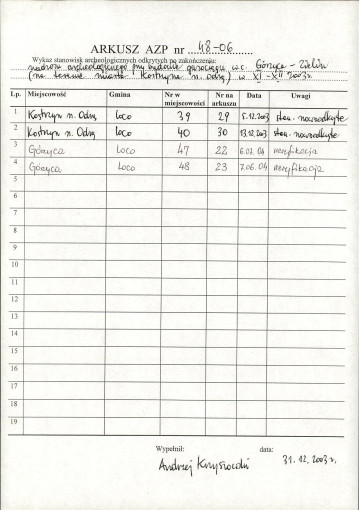 ARKUSZ AZP nr 48-06
Wykaz stanowisk archeologicznych odkrytych po zakończeniu:
nadzoru archeologicznego przy budowie gazociągu w.c. Górzyca - Zielin
(na terenie miasta Kostrzyn n. Odrą) w XI - XII 2003 r.
Lp. Miejscowość Gmina Nr w miejscowości Nr na arkuszu Data Uwagi
1 Kostrzyn n. Odrą Loco 39 29 5.12.2003 stan. nowoodkryte
2 Kostrzyn n. Odrą Loco 40 30 13.12.2003 stan. nowoodkryte
3 Górzyca Loco 47 22 6.02.04 weryfikacja
4 Górzyca Loco 48 23 7.06.04 weryfikacja
5
6
7
8
9
10
11
12
13
14
15
16
17
18
19
Wypełnił: data:
Andrzej 31. 12. 2003 r.